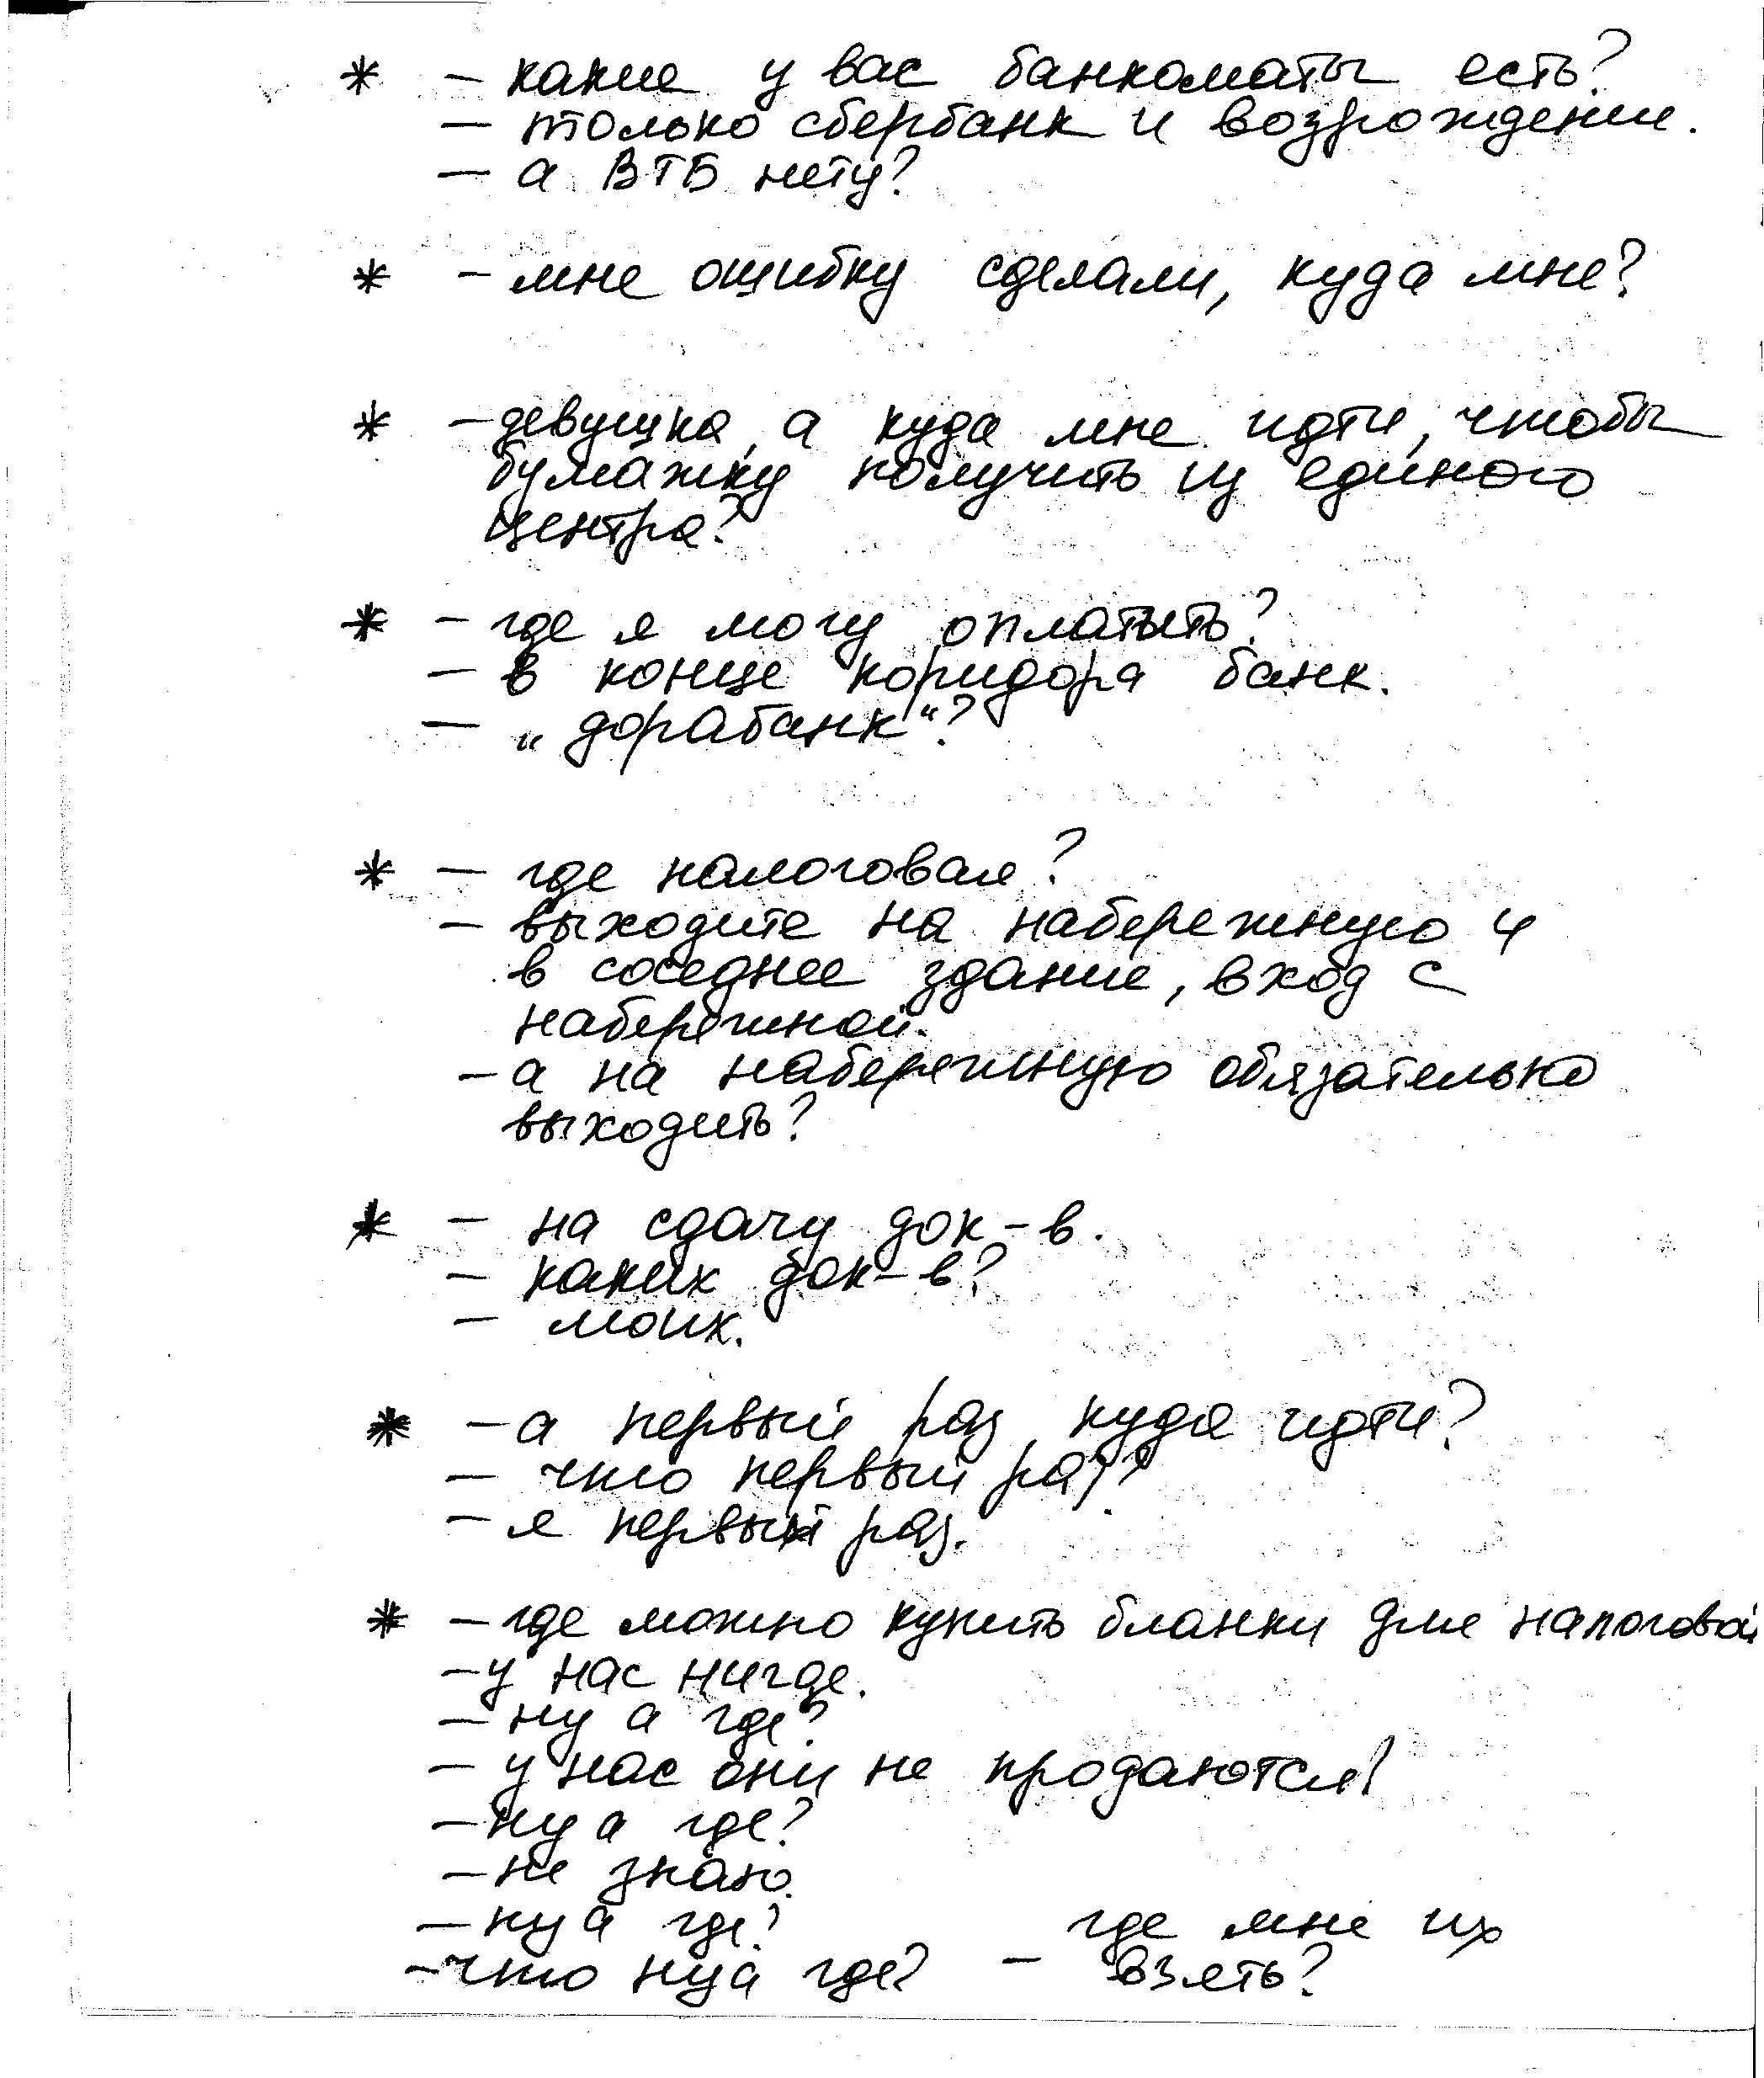 * - какие у вас банкоматы есть?
- только сбербанк и возрождение.
- а ВТБ нету?
* - мне ошибку сделали, куда мне?
* - девушка, а куда мне идти, чтобы
бумажку получить из единого
центра?
* - где я могу оплатить?
- в конце коридора банк.
- „дорабанк“?
* - где налоговая?
- выходите на набережную и
в соседнее здание, вход с
набережной.
- а на набережную обязательно
выходить?
* - на сдачу док-в.
- каких док-в?
- моих.
* - а первый раз куда идти?
- что первый раз?
- я первый раз.
* - где можно купить бланки для налоговой
- у нас нигде.
- ну а где?
- у нас они не продаются!
- ну а где?
- не знаю.
- ну а где?
- что ну а где? - где мне их
взять?